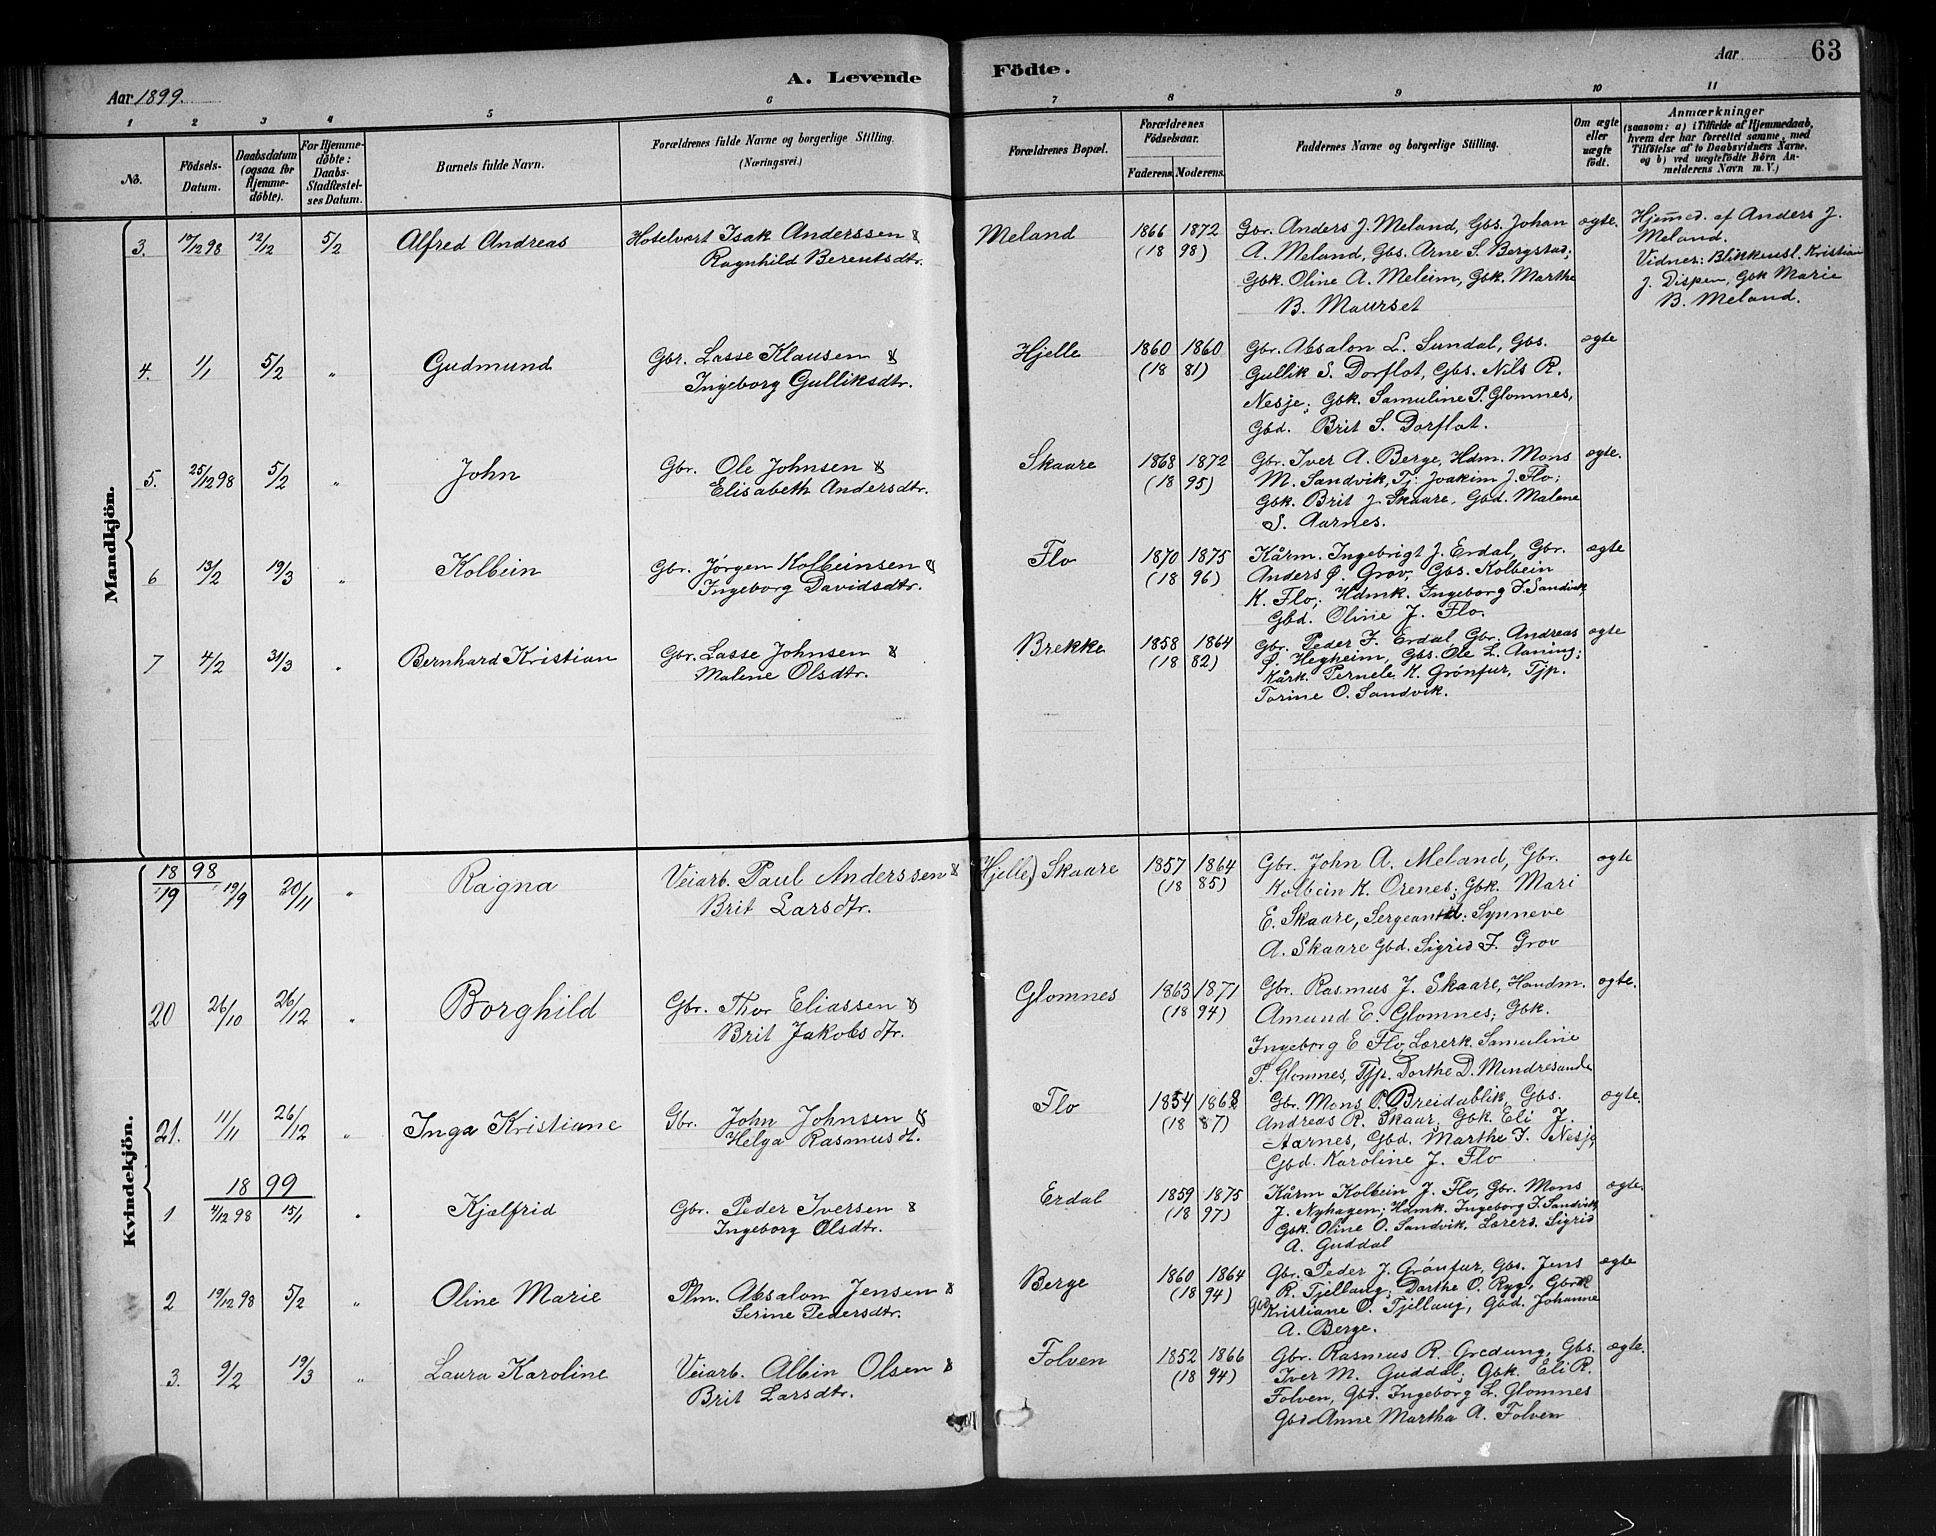 Aar 1899.
A. Levende Födte.
Aar 63
1 2 3 4 5 6 7 8 9 10 11
No.
Födsels-
Datum.
Daabsdatum
(ogsaa for
Hjemme-
döbte).
For Hjemme-
döbte:
Daabs-
Stadfæstel-
ses Datum.
Barnets fulde Navn.
Forældrenes fulde Navne og borgerlige Stilling.
(Næringsvei.)
Forældrenes Bopæl.
Forældrenes
Fødselsaar.
Faderens. Moderens.
Faddernes Navne og borgerlige Stilling.
Om ægte
eller
uægte
født.
Anmærkninger
(saasom: a) i Tilfælde af Hjemmedaab,
hvem der har forrettet samme, med
Tilføielse af to Daabsvidners Navne.
og b) ved uægtefødte Börn An-
melderens Navn m.V.)
Mandkjön.
3. 10/12 98 12/12 5/2 Alfred Andreas
Hotelvært Isak Anderssen &
Ragnhild Berentsdtr.
Meland
1866 1872
(18 98)
Gbr. Anders J. Meland, Gbs. Johan
A. Meland, Gbs. Arne S. Bergstad;
Gbk. Oline A. Meleim, Gbk. Marthe
B. Maurset
ægte.
Hjemmed. af Anders J.
Meland.
Vidner: Blikkensl. Kristian
J. Dispen, Gbk Marie
B. Meland.
4. 1/1 5/2 " Gudmund
Gbr. Lasse Klausen &
Ingeborg Gulliksdtr.
Hjelle
1860 1860
(18 81)
Gbr. Absalon L. Sundal, Gbs.
Gullik S. Dorflot, Gbs. Nils R.
Nesje; Gbk. Samuline P. Glomnes,
Gbd. Brit S. Dorflot.
ægte
5. 25/12 98 5/2 " John
Gbr. Ole Johnsen &
Elisabeth Andersdtr.
Skaare
1868 1872
(18 95)
Gbr. Iver A. Berge, Hdm. Mons
M. Sandvik, Tj. Joakim J. Flo;
Gbk. Brit J. Skaare, Gbd. Malene
S. Aarnes.
ægte.
6 13/2 19/3 " Kolbein
Gbr. Jørgen Kolbeinsen &
Ingeborg Davidsdtr.
Flo
1870 1875
(18 96)
Kårm. Ingebrigt J. Erdal, Gbr.
Anders Ø. Grov, Gbs. Kolbein
K. Flo; Hdmk. Ingeborg J. Sandvik
Gbd. Oline J. Flo.
ægte
7 4/2 31/3 " Bernhard Kristian
Gbr. Lasse Johnsen &
Malene Olsdtr.
Brekke
1858 1864
(18 82)
Gbr. Peder J. Erdal Gbr. Andreas
Ø. Hegheim, Gbs. Ole L. Aaning;
Kårk. Pernele K. Grønfur, Tjp.
Torine O. Sandvik.
ægte
Kvindekjön.
18 98
19 19/9 20/11 " Ragna
Veiarb. Paul Anderssen &
Brit Larsdtr.
(Hjelle) Skaare
1857 1864
(18 85)
Gbr. John A. Meland, Gbr.
Kolbein K. Orenes; Gbk. Mari
E. Skaare, Sergeantd: Synneve
A. Skaare Gbd. Sigrid J. Grov
ægte
20 26/10 26/12 " Borghild
Gbr. Thor Eliassen &
Brit Jakobsdtr.
Glomnes
1863 1871
(18 94)
Gbr. Rasmus J. Skaare, Handm.
Amund E. Glomnes; Gbk.
Ingeborg E Flo, Lærerk. Samuline
P. Glomnes, Tjp. Dorthe D. Mindresunde
ægte.
21. 11/11 26/12 " Inga Kristiane
Gbr. John Johnsen &
Helga Rasmusdt.
Flo
1854 1868
(18 87)
Gbr. Mons P. Breidablik, Gbs.
Andreas R. Skaar; Gbk. Eli J.
Aarnes, Gbd. Marthe J. Nesje,
Gbd. Karoline J. Flo
ægte.
18 99
1 4/12 98 15/1 " Kjælfrid
Gbr. Peder Iversen &
Ingeborg Olsdtr.
Erdal
1859 1875
(18 97)
Kårm Kolbein J. Flo, Gbr. Mons
J. Nyhagen; Hdmk. Ingeborg J. Sandvik
Gbk. Oline O. Sandvik, Lærerd. Sigrid
A. Guddal
ægte.
2 19/12 98 5/2 " Oline Marie
Plm. Absalon Jensen &
Serine Pedersdtr.
Berge
1860 1864
(18 94)
Gbr. Peder J. Grønfur, Gbs. Jens
R. Tjellaug; Dorthe O. Ryg, Gbrk
Gbd Kristiane O. Tjellaug, Gbd. Johanne
A. Berge.
ægte
3. 9/2 19/3 " Laura Karoline
Veiarb. Albin Olsen &
Brit Larsdtr.
Folven
1852 1866
(18 94)
Gbr. Rasmus R. Gredung, Gbs.
Iver M. Guddal; Gbk. Eli R.
Folven, Gbd. Ingeborg L. Glomnes
Gbd. Anne Martha A. Folven
ægte.